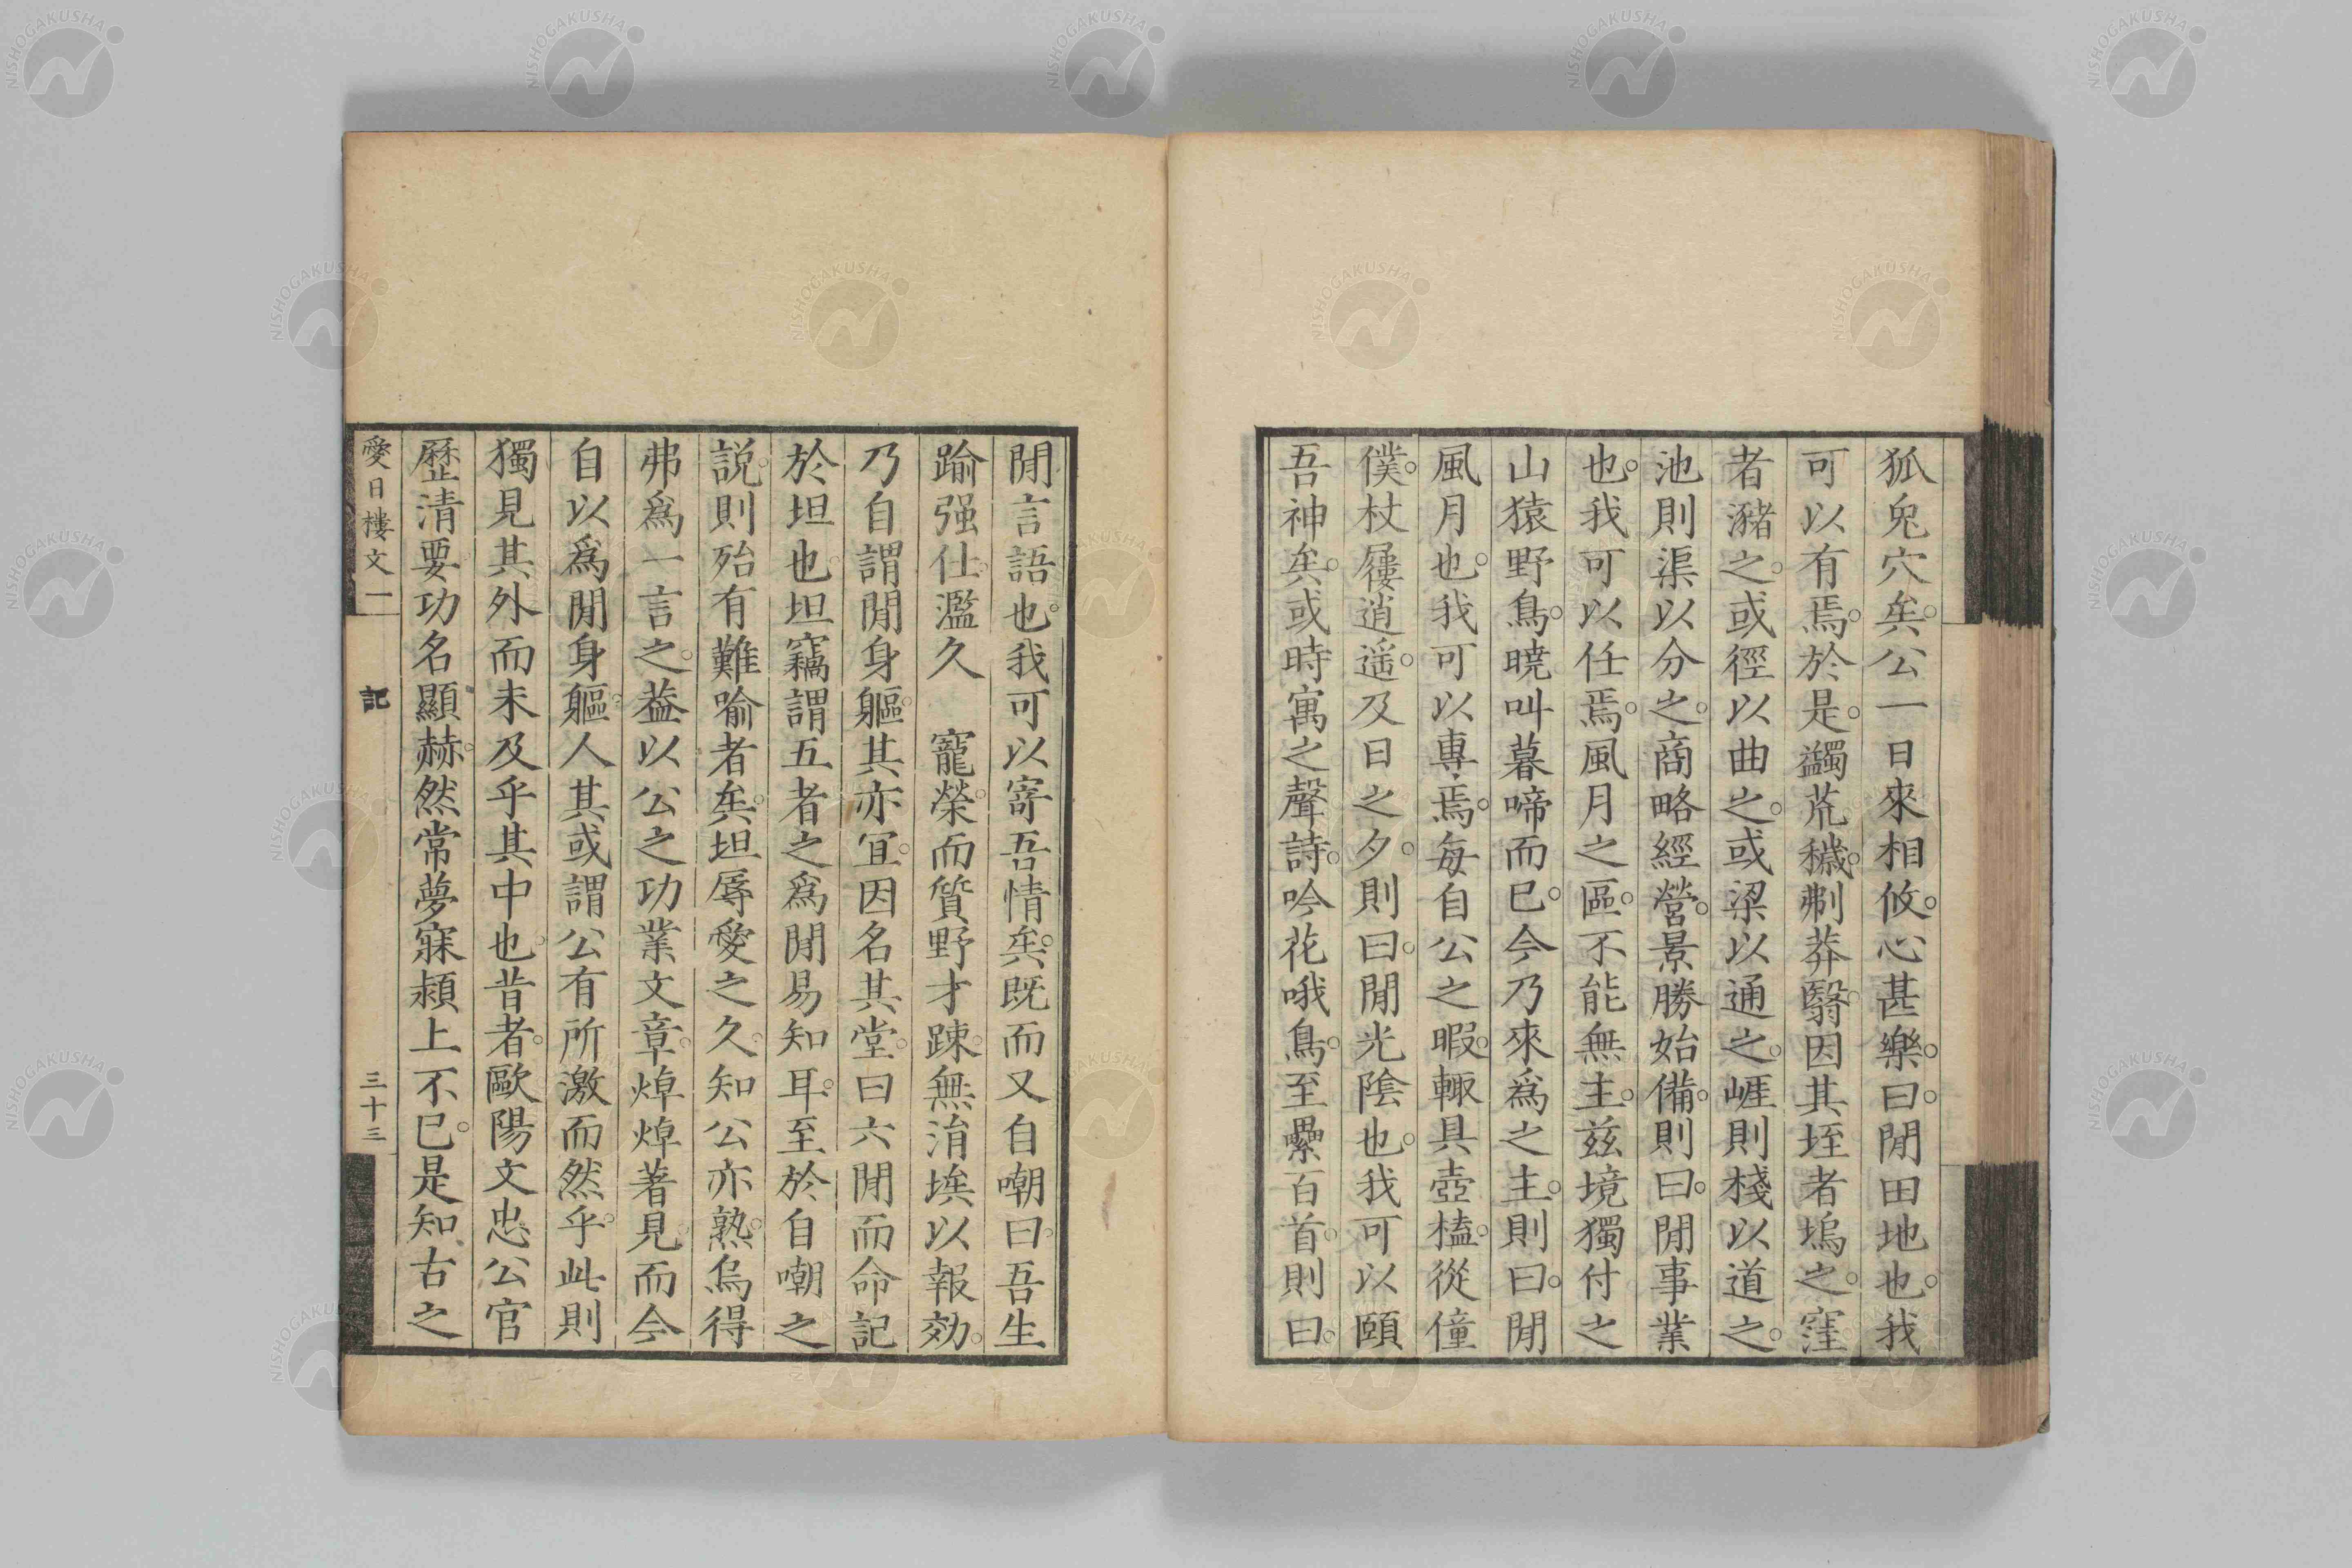 狐兎穴矣。公一日來相攸。心甚樂。曰。閒田地也。我
可以有焉。於是。蠲荒穢。剃莽翳。因其垤者塢之。窪
者瀦之。或徑以曲之。或梁以通之。崕則棧以道之。
池則渠以分之。商略經營。景勝始備。則曰。閒事業
也。我可以任焉。風月之區。不能無主。兹境獨付之
山猿野鳥。曉叫暮啼而已。今乃來爲之主。則曰。閒
風月也。我可以專焉。每自公之暇。輙具壺榼。從僮
僕。杖屨逍遥。及日之夕。則曰。閒光陰也。我可以頤
吾神矣。或時寓之聲詩。吟花哦鳥。至纍百首。則曰。
閒言語也。我可以寄吾情矣。既而又自嘲曰。吾生
踰强仕。濫久　寵榮。而質野才踈。無涓埃以報効。
乃自謂閒身軀。其亦冝。因名其堂。曰六閒而命記
於坦也。坦竊謂五者之爲閒易知耳。至於自嘲之
説。則殆有難喻者矣。坦辱愛之久。知公亦熟。烏得
弗爲一言之。葢以公之功業文章。焯焯著見。而今
自以爲閒身軀。人其或謂公有所激而然乎。此則
獨見其外而未及乎其中也。昔者。歐陽文忠公官
歷清要功名顯赫。然常夢寐潁上不已。是知古之
愛日樓文二　記　三十三
NISHOGAKUSHA